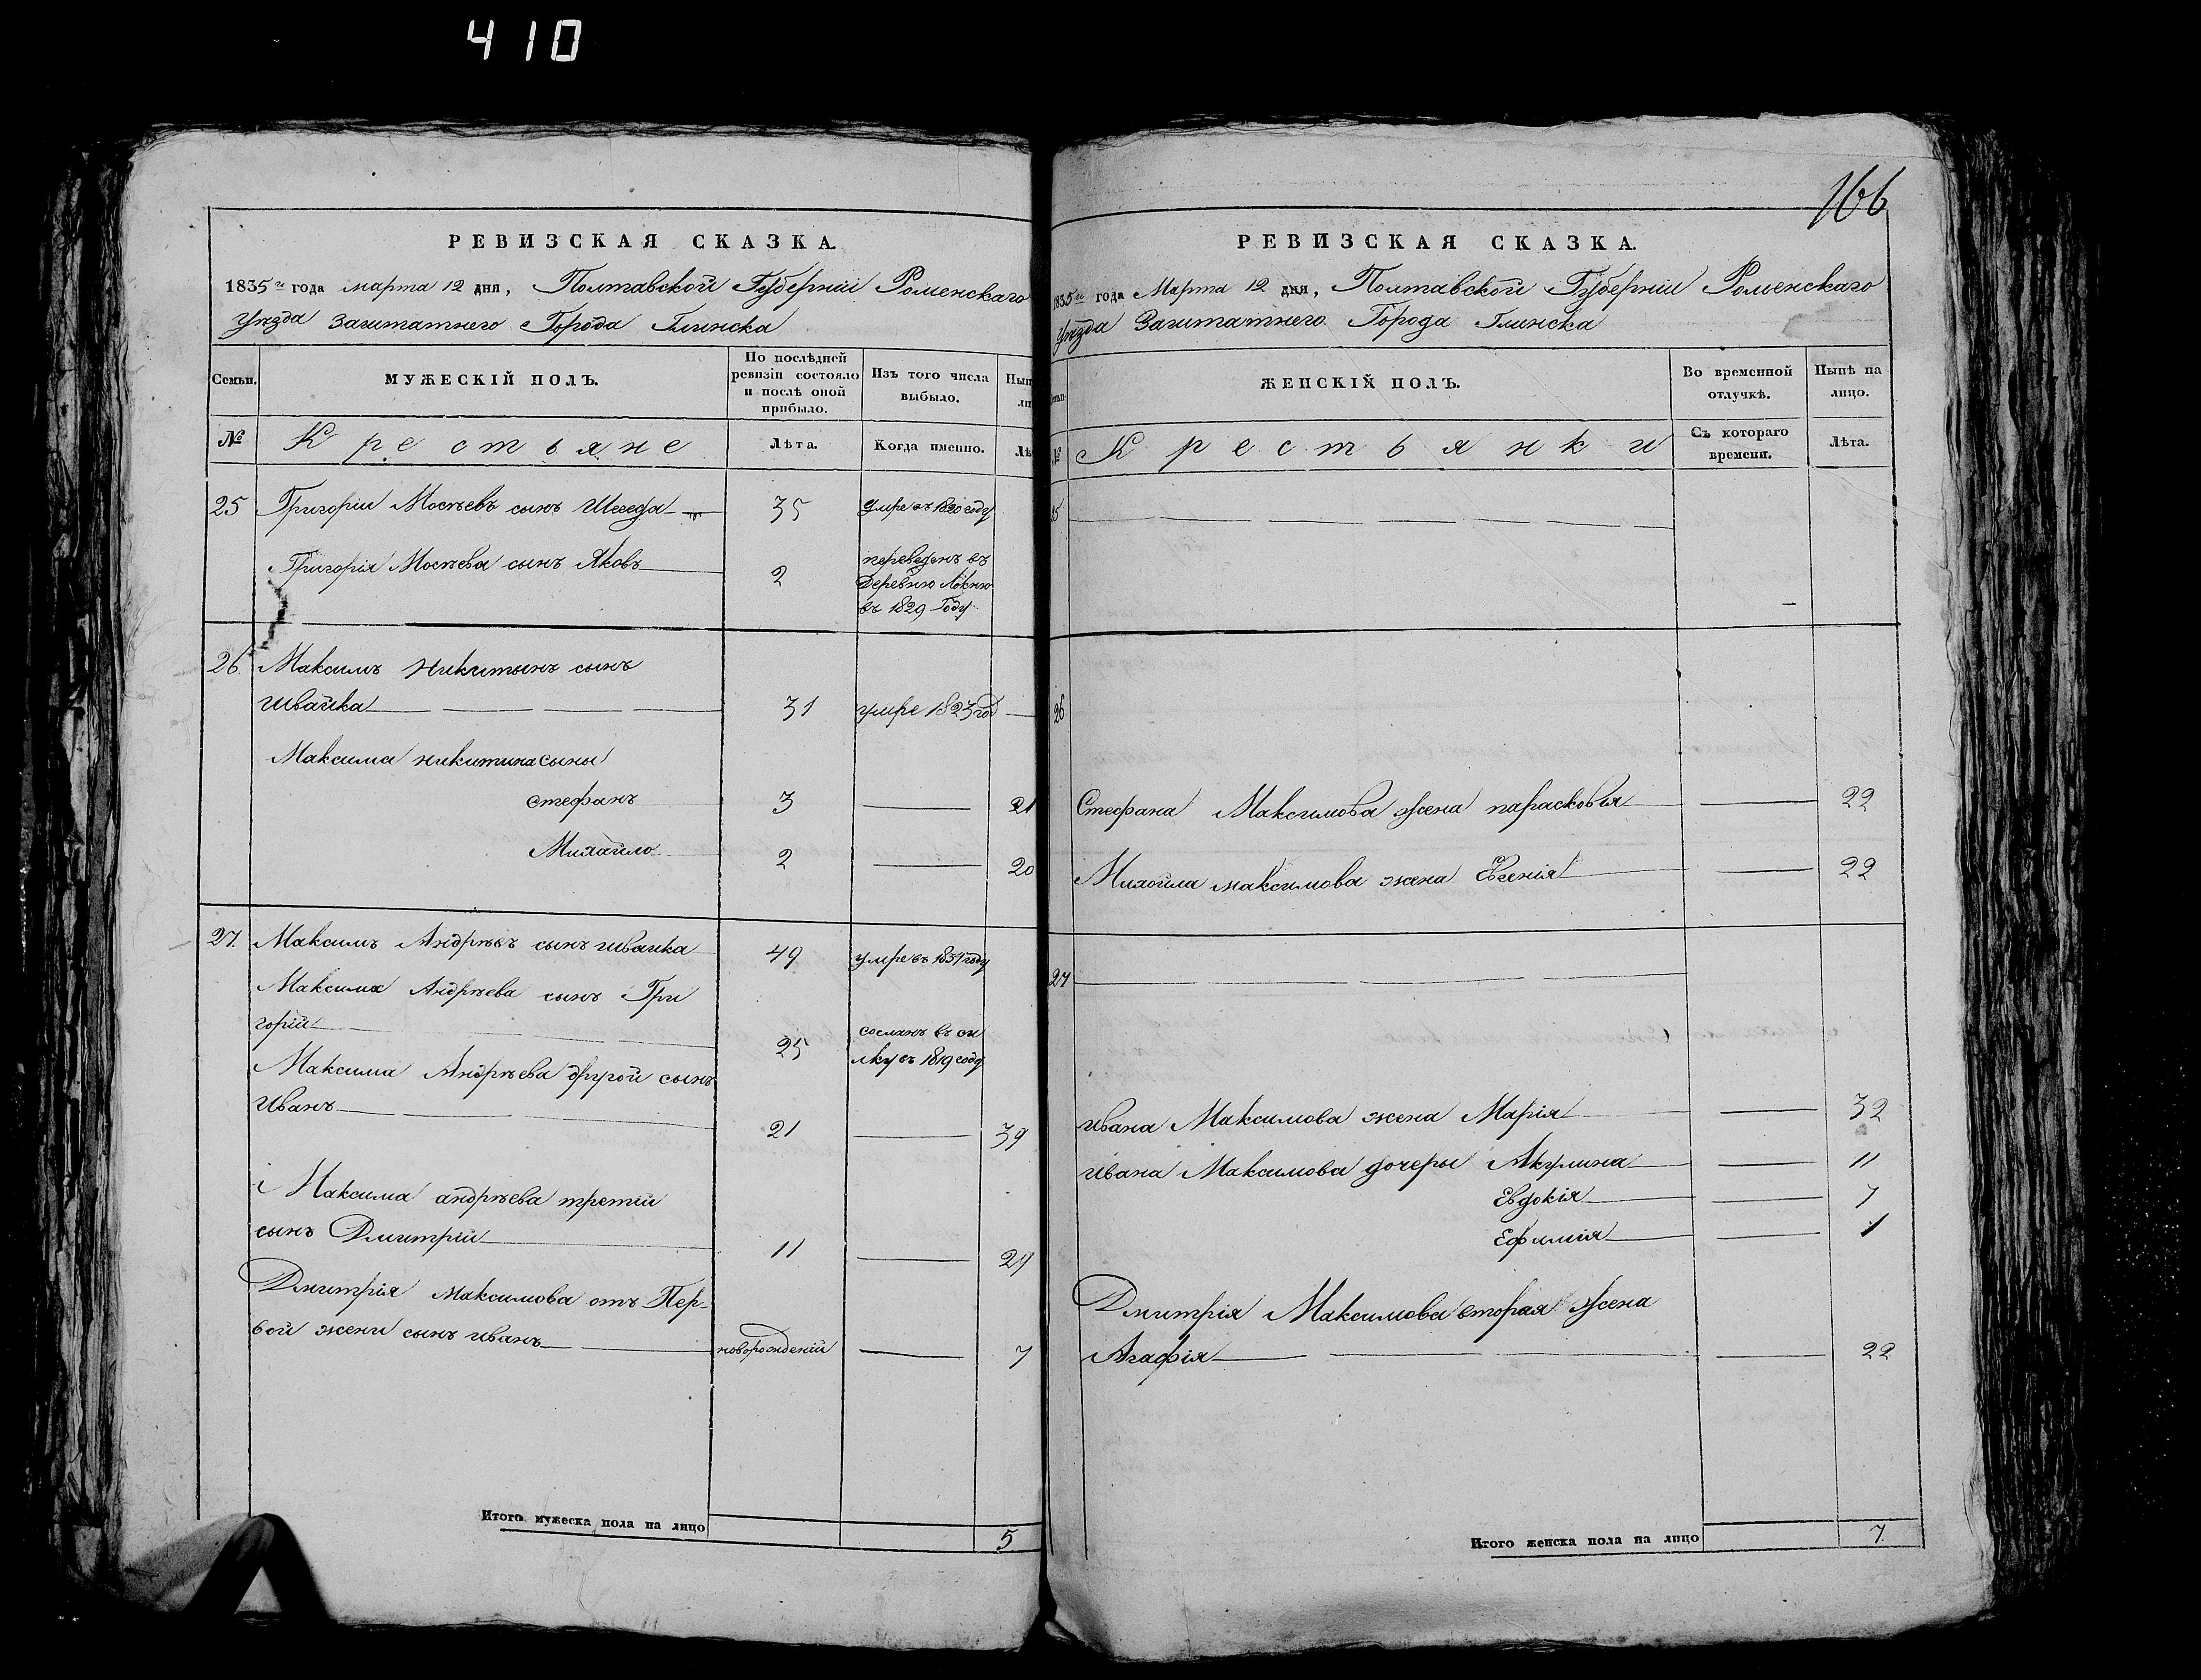 410
РЕВИЗСКАЯ СКАЗКА.
1835го года марта 12 дня, Полтавской Губерніи Роменскаго
Уѣзда Заштатнего Города Глинска
Семьи.
МУЖЕСКІЙ ПОЛЪ.
По послѣдней ревизіи состояло и послѣ оной прибыло.
Изъ того числа выбыло.
№
Крестьяне
Лѣта.
Когда именно.
25 Григорій Мосѣевъ сынъ 35 умре въ 1820 году
Григорія Мосѣева сынъ Яковъ 2 переведенъ въ
деревню Локню
въ 1829 Году
26. Максимъ Никитынъ сынъ
Швайка 31 умре 1823 год
Максима никитина сыны
Стефанъ 3 21
Михайло 2 20
27. Максимъ Андрѣевъ сынъ швайка 49 умре въ 1831 году
Максима Андрѣева сынъ Гри
горій 25 сосланъ въ сы
лку въ 1819 году
Максима Андрѣева другой сынъ
Иванъ 21 39
Максима андрѣева третій
сынъ Дмитрій 11 29
Дмитрія Максимова отъ Пер-
вой жени сынъ иванъ новорожденій 7
Итого мужеска пола на лицо 5
166
РЕВИЗСКАЯ СКАЗКА.
1835го года Марта 12 дня, Полтавской Губерніи Роменскаго
Уѣзда Заштатнего Города Глинска
ЖЕНСКІЙ ПОЛЪ.
Во временной отлучкѣ.
Нынѣ на лицо.
№
Крестьянки
Съ котораго времени.
Лѣта.
25
26
Стефана Максимова жена парасковія 22
Михайла максимова жена Евгенія 22
27
ивана Максимова жена Марія 32
ивана Максимова дочеры Акулина 11
Евдокія 7
Ефимія 1
Дмитрія Максимова вторая жена
Агафія 22
Итого женска пола на лицо 7.